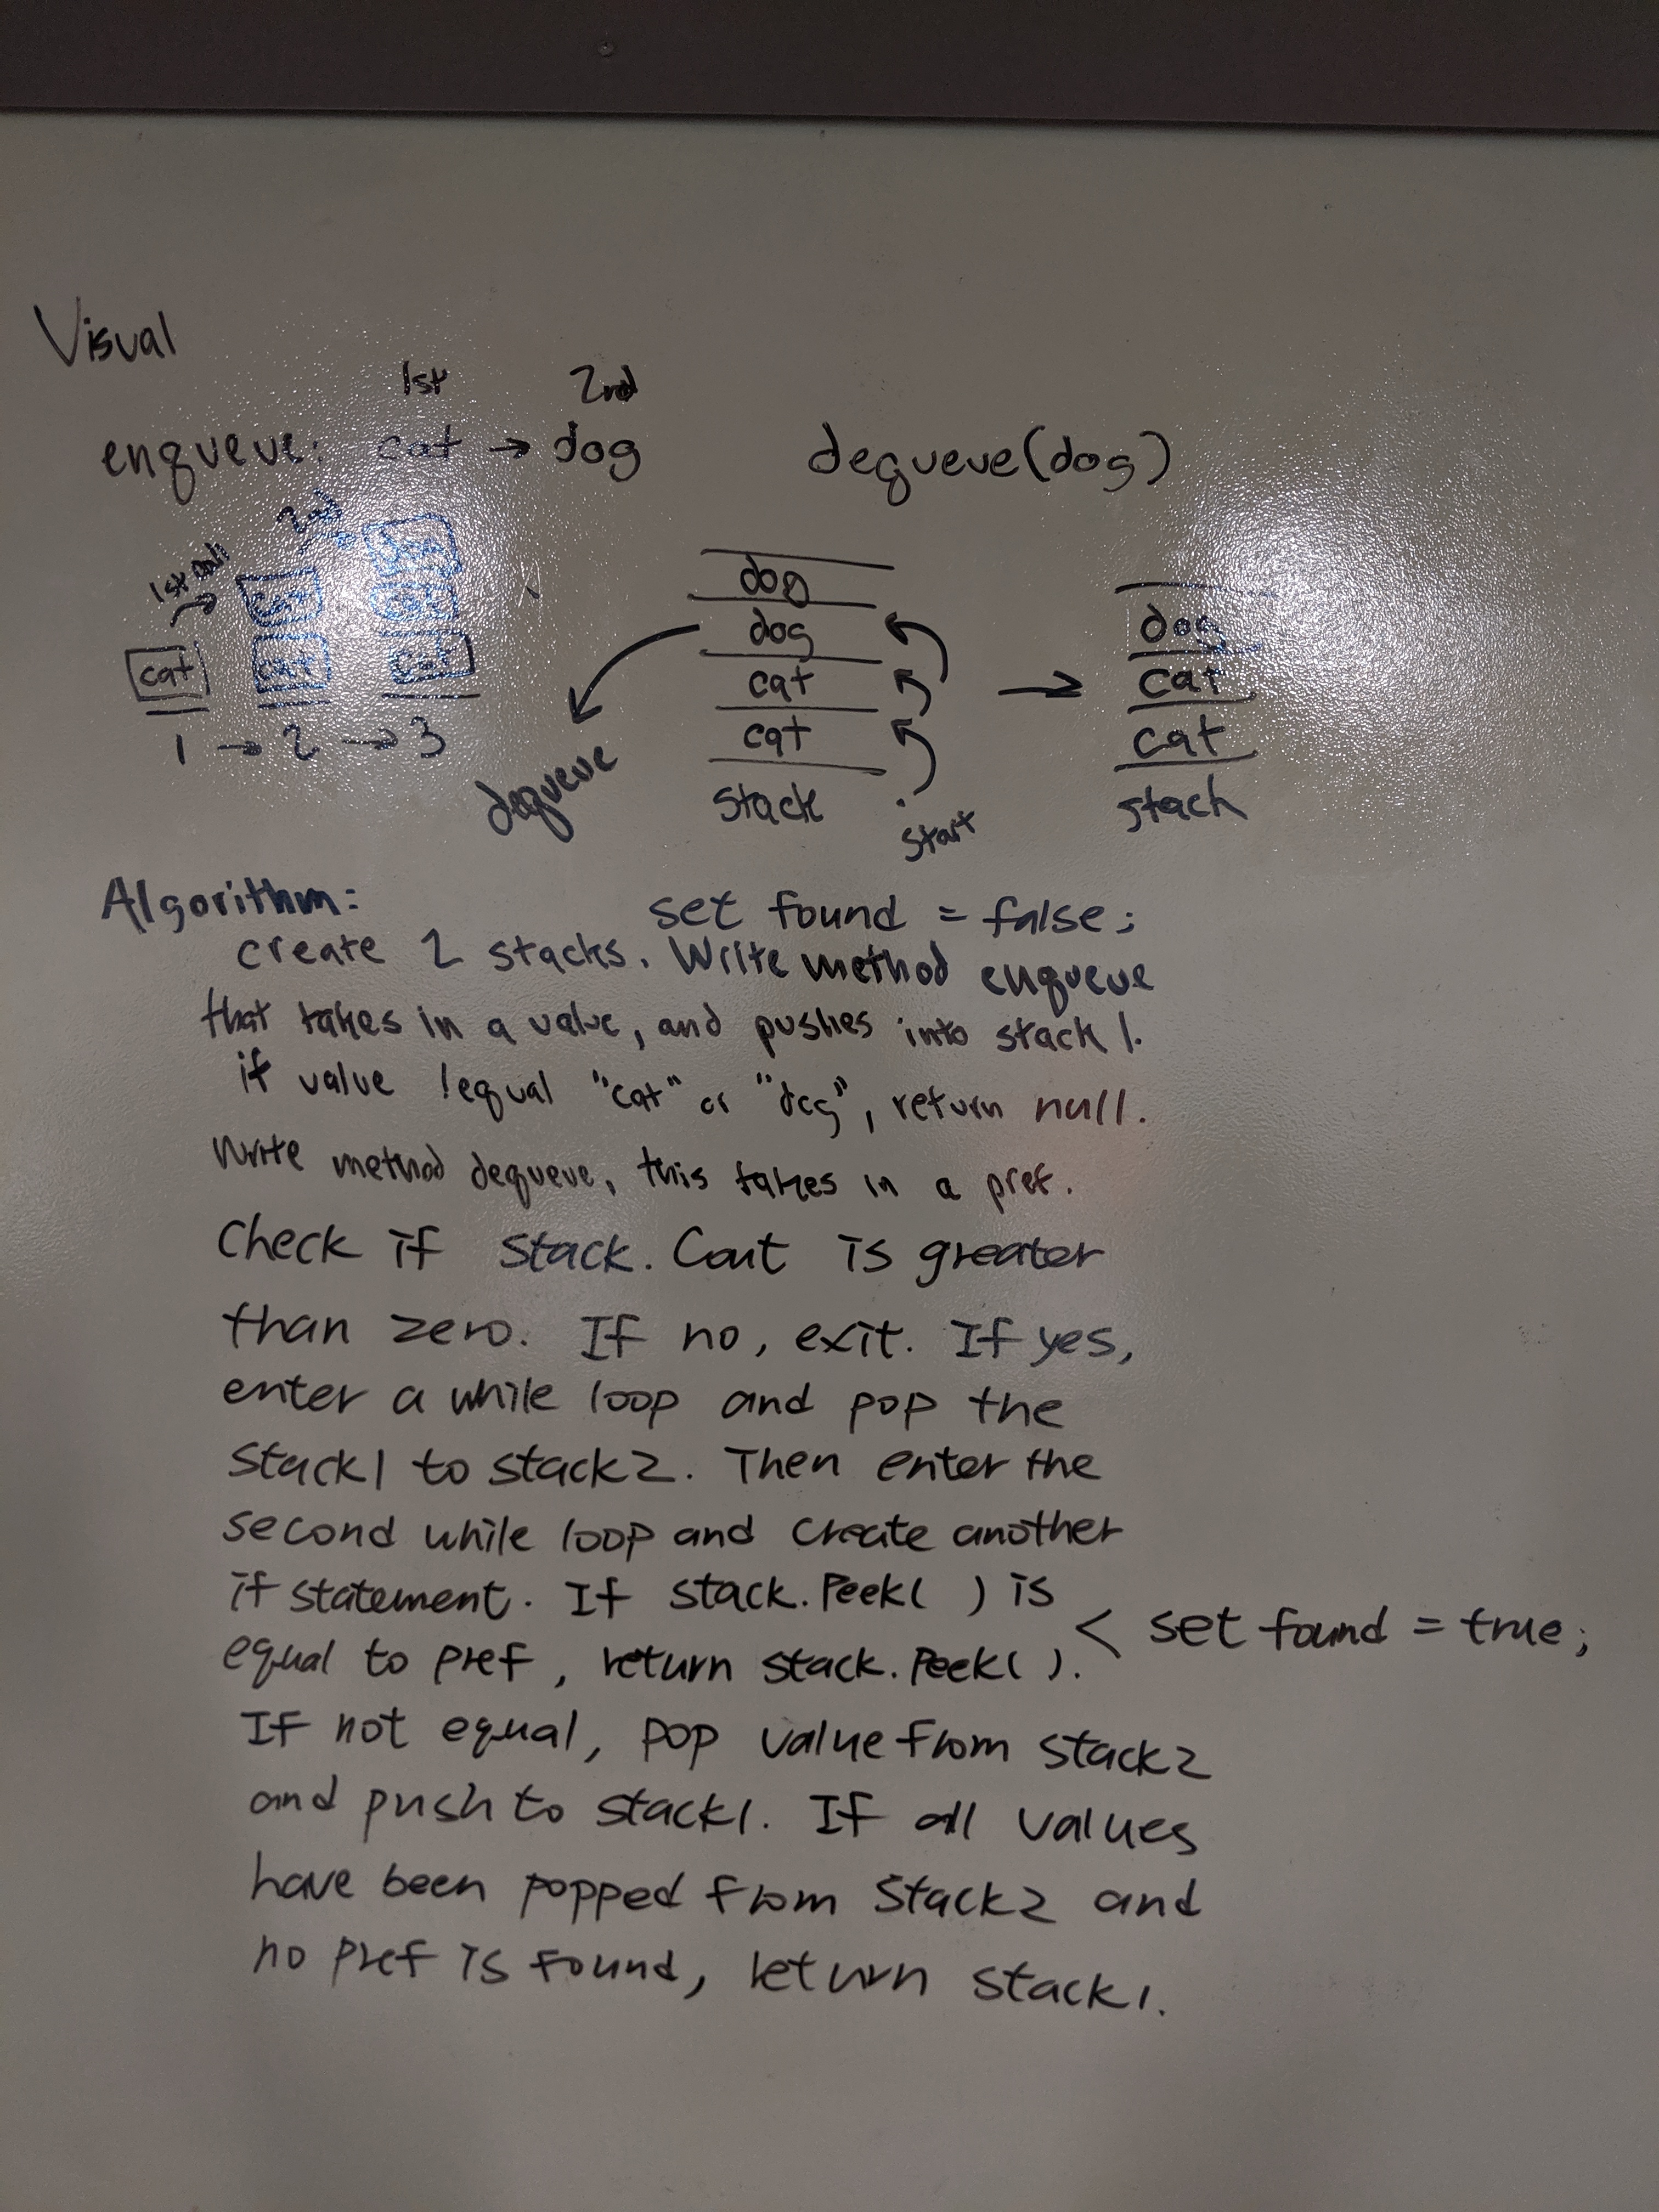 Visual
1st 2nd
enqueue: cat → dog
dequeue(dog)
1st call
2nd
dog
cat cat
cat cat cat
1 → 2 → 3
dog
dog
cat
cat
stack
dequeue
start
dog
cat
cat
stack
Algorithm:
set found = false;
create 2 stacks. Write method enqueue
that takes in a value, and pushes into stack 1.
if value !equal "cat" or "dog", return null.
Write method dequeue, this takes in a pref.
Check if stack. Cout is greater
than zero. If no, exit. If yes,
enter a while loop and pop the
stack1 to stack2. Then enter the
second while loop and create another
if statement. If stack.Peek( ) is
equal to pref, return stack.Peek( ). < set found = true;
If not equal, pop value from stack2
and push to stack1. If all values
have been popped from Stack2 and
no pref is found, return stack1.